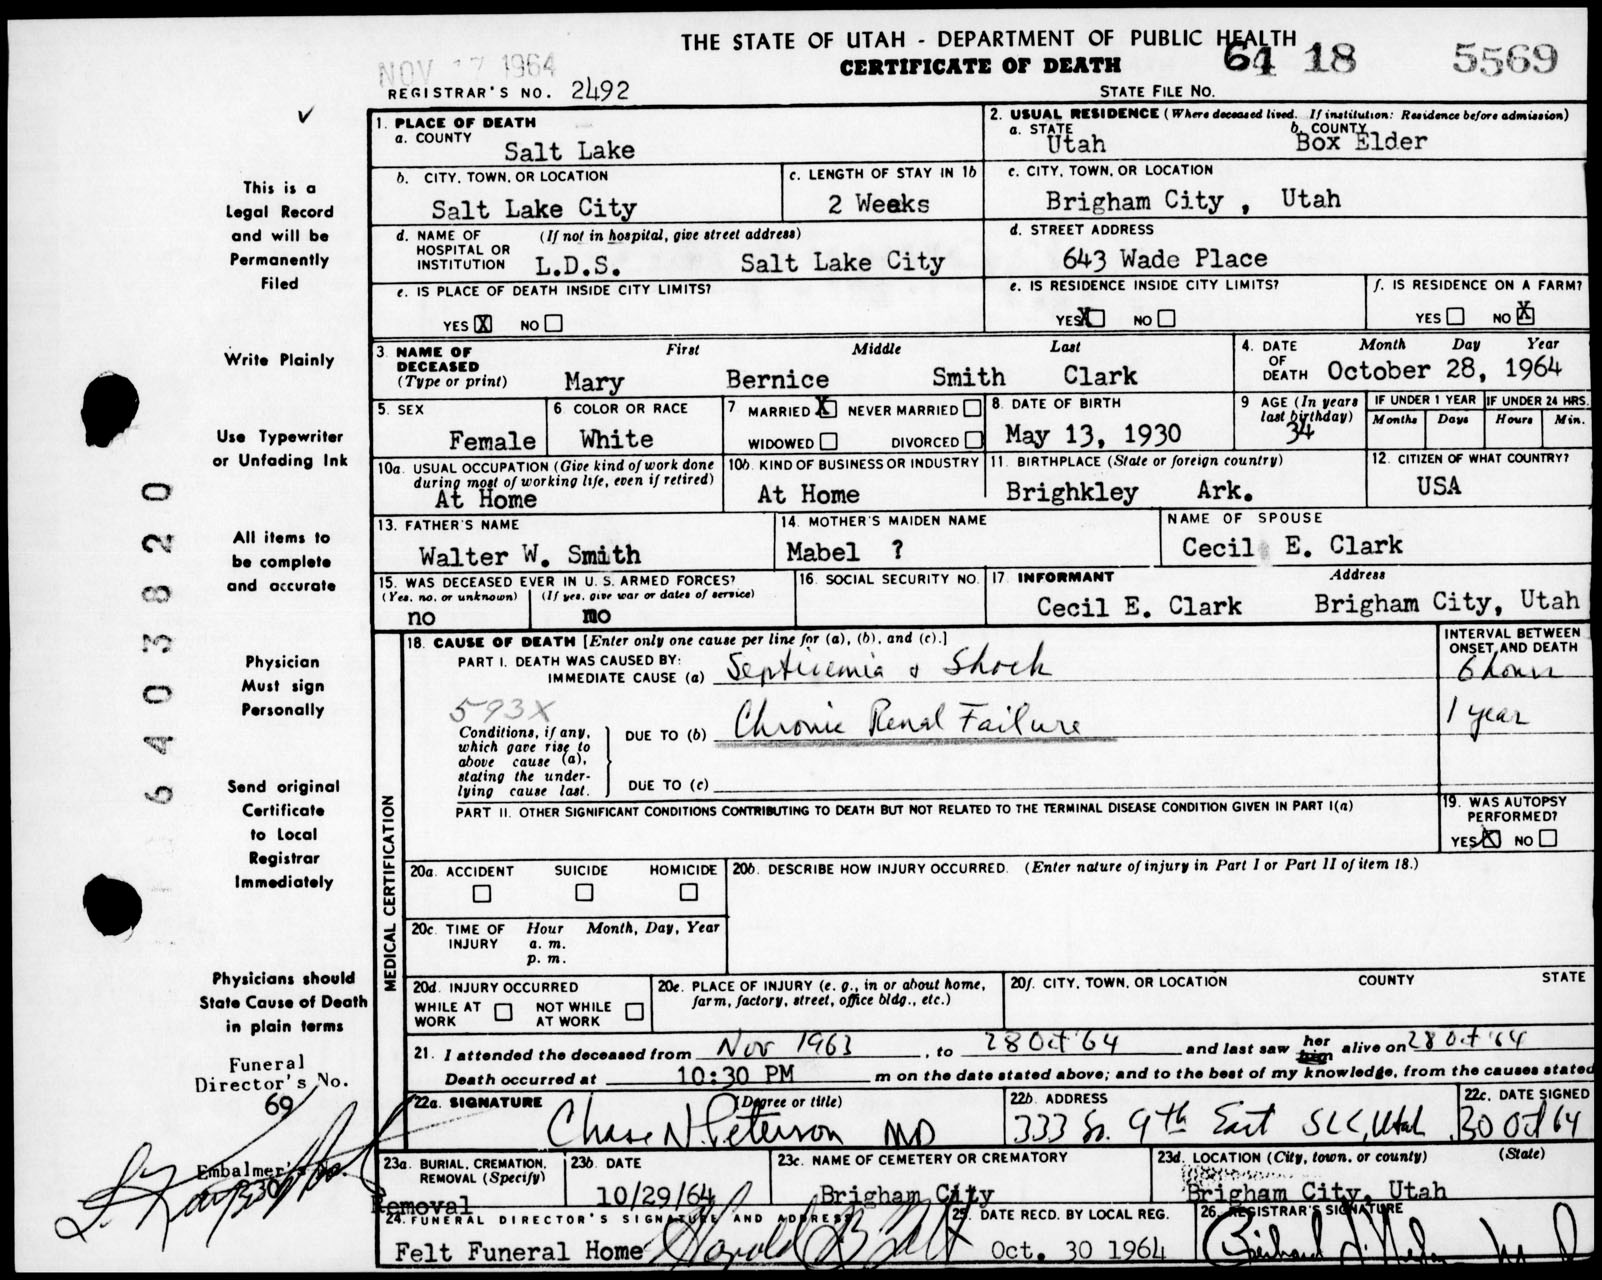 THE STATE OF UTAH - DEPARTMENT OF PUBLIC HEALTH
CERTIFICATE OF DEATH
64 18 5569
NOV 17 1964
REGISTRAR'S NO. 2492
STATE FILE NO.
✓
This is a
Legal Record
and will be
Permanently
Filed
Write Plainly
Use Typewriter
or Unfading Ink
All items to
be complete
and accurate
Physician
Must sign
Personally
Send original
Certificate
to Local
Registrar
Immediately
Physicians should
State Cause of Death
in plain terms
Funeral
Director's No.
69
Embalmer's No.
64 03820
1. PLACE OF DEATH
a. COUNTY
Salt Lake
2. USUAL RESIDENCE (Where deceased lived. If institution: Residence before admission)
a. STATE Utah
b. COUNTY Box Elder
b. CITY, TOWN, OR LOCATION
Salt Lake City
c. LENGTH OF STAY IN 1b
2 Weeks
c. CITY, TOWN, OR LOCATION
Brigham City , Utah
d. NAME OF HOSPITAL OR INSTITUTION (If not in hospital, give street address)
L.D.S. Salt Lake City
d. STREET ADDRESS
643 Wade Place
e. IS PLACE OF DEATH INSIDE CITY LIMITS?
YES X NO
e. IS RESIDENCE INSIDE CITY LIMITS?
YES X NO
f. IS RESIDENCE ON A FARM?
YES NO X
3. NAME OF DECEASED (Type or print)
First Middle Last
Mary Bernice Smith Clark
4. DATE OF DEATH
Month Day Year
October 28, 1964
5. SEX
Female
6. COLOR OR RACE
White
7. MARRIED X NEVER MARRIED
WIDOWED DIVORCED
8. DATE OF BIRTH
May 13, 1930
9. AGE (In years last birthday)
34
IF UNDER 1 YEAR
Months Days
IF UNDER 24 HRS.
Hours Min.
10a. USUAL OCCUPATION (Give kind of work done during most of working life, even if retired)
At Home
10b. KIND OF BUSINESS OR INDUSTRY
At Home
11. BIRTHPLACE (State or foreign country)
Brighkley Ark.
12. CITIZEN OF WHAT COUNTRY?
USA
13. FATHER'S NAME
Walter W. Smith
14. MOTHER'S MAIDEN NAME
Mabel ?
NAME OF SPOUSE
Cecil E. Clark
15. WAS DECEASED EVER IN U. S. ARMED FORCES?
(Yes, no, or unknown) (If yes, give war or dates of service)
no no
16. SOCIAL SECURITY NO.
17. INFORMANT Address
Cecil E. Clark Brigham City, Utah
MEDICAL CERTIFICATION
18. CAUSE OF DEATH [Enter only one cause per line for (a), (b), and (c).]
INTERVAL BETWEEN ONSET AND DEATH
PART I. DEATH WAS CAUSED BY:
IMMEDIATE CAUSE (a) Septicemia & Shock
6 hours
593X
Conditions, if any, which gave rise to above cause (a), stating the underlying cause last.
DUE TO (b) Chronic Renal Failure
1 year
DUE TO (c)
PART II. OTHER SIGNIFICANT CONDITIONS CONTRIBUTING TO DEATH BUT NOT RELATED TO THE TERMINAL DISEASE CONDITION GIVEN IN PART I(a)
19. WAS AUTOPSY PERFORMED?
YES X NO
20a. ACCIDENT SUICIDE HOMICIDE
20b. DESCRIBE HOW INJURY OCCURRED. (Enter nature of injury in Part I or Part II of item 18.)
20c. TIME OF INJURY Hour Month, Day, Year
a. m.
p. m.
20d. INJURY OCCURRED
WHILE AT WORK NOT WHILE AT WORK
20e. PLACE OF INJURY (e. g., in or about home, farm, factory, street, office bldg., etc.)
20f. CITY, TOWN, OR LOCATION COUNTY STATE
21. I attended the deceased from Nov 1963, to 28 Oct '64 and last saw her him alive on 28 Oct '64
Death occurred at 10:30 PM m on the date stated above; and to the best of my knowledge, from the causes stated
22a. SIGNATURE (Degree or title)
Chase N Peterson MD
22b. ADDRESS
333 So. 9th East SLC, Utah
22c. DATE SIGNED
30 Oct 64
23a. BURIAL, CREMATION, REMOVAL (Specify)
Removal
23b. DATE
10/29/64
23c. NAME OF CEMETERY OR CREMATORY
Brigham City
23d. LOCATION (City, town, or county) (State)
Brigham City, Utah
24. FUNERAL DIRECTOR'S SIGNATURE AND ADDRESS
Felt Funeral Home Harold B Felt
25. DATE RECD. BY LOCAL REG.
Oct. 30 1964
26. REGISTRAR'S SIGNATURE